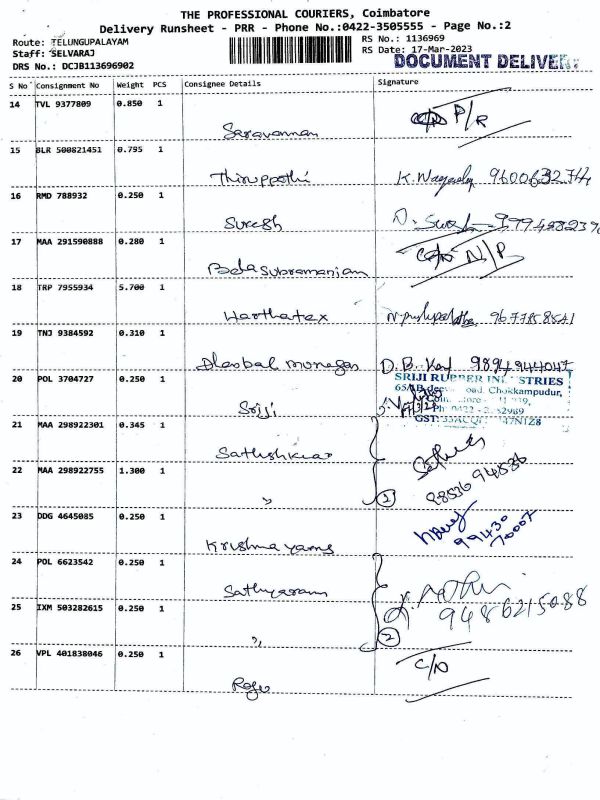 THE PROFESSIONAL COURIERS, Coimbatore
Delivery Runsheet - PRR - Phone No.:0422-3505555 - Page No.:2
Route: TELUNGUPALAYAM
Staff: SELVARAJ
DRS No.: DCJB113696902
RS No.: 1136969
RS Date: 17-Mar-2023
DOCUMENT DELIVER
S No Consignment No Weight PCS Consignee Details Signature
14 TVL 9377809 0.850 1
Saravannan P/R
15 BLR 500821451 0.795 1
Thiruppathi K. 9600632744
16 RMD 788932 0.250 1
Suresh
17 MAA 291590888 0.280 1
Balasubramaniam N/P
18 TRP 7955934 5.700 1
Harthatex 9677858541
19 TNJ 9384592 0.310 1
D.B. 9894944047
20 POL 3704727 0.250 1
Sriji
SRIJI RUBBER INDUSTRIES
Chokkampudur,
21 MAA 298922301 0.345 1
Sathishkumar
22 MAA 298922755 1.300 1
" 1
23 DDG 4645085 0.250 1
Krishna yarns 99430
70007
24 POL 6623542 0.250 1
Sathyaram
9486215088
25 IXM 503282615 0.250 1
" 2
26 VPL 401838046 0.250 1
Raju C/D